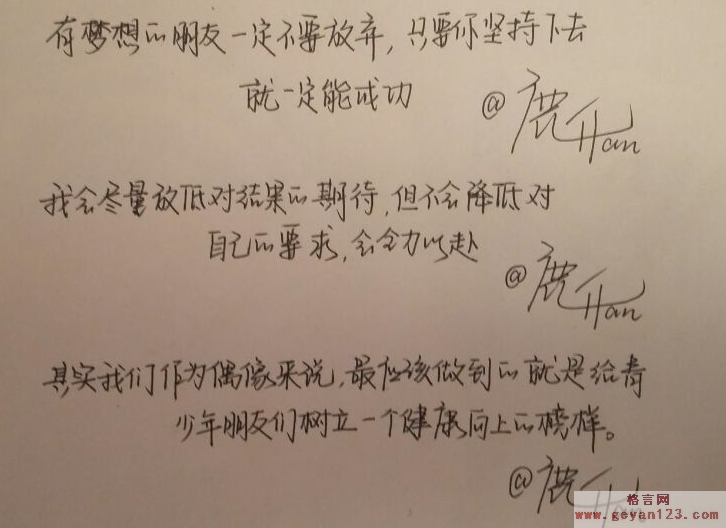 有梦想的朋友一定不要放弃,只要你坚持下去
就一定能成功
@鹿Han
我会尽量放低对结果的期待,但不会降低对
自己的要求,会全力以赴
@鹿Han
其实我们作为偶像来说,最应该做到的就是给青
少年朋友们树立一个健康向上的榜样。
@鹿Han
格言网
www.geyan123.com